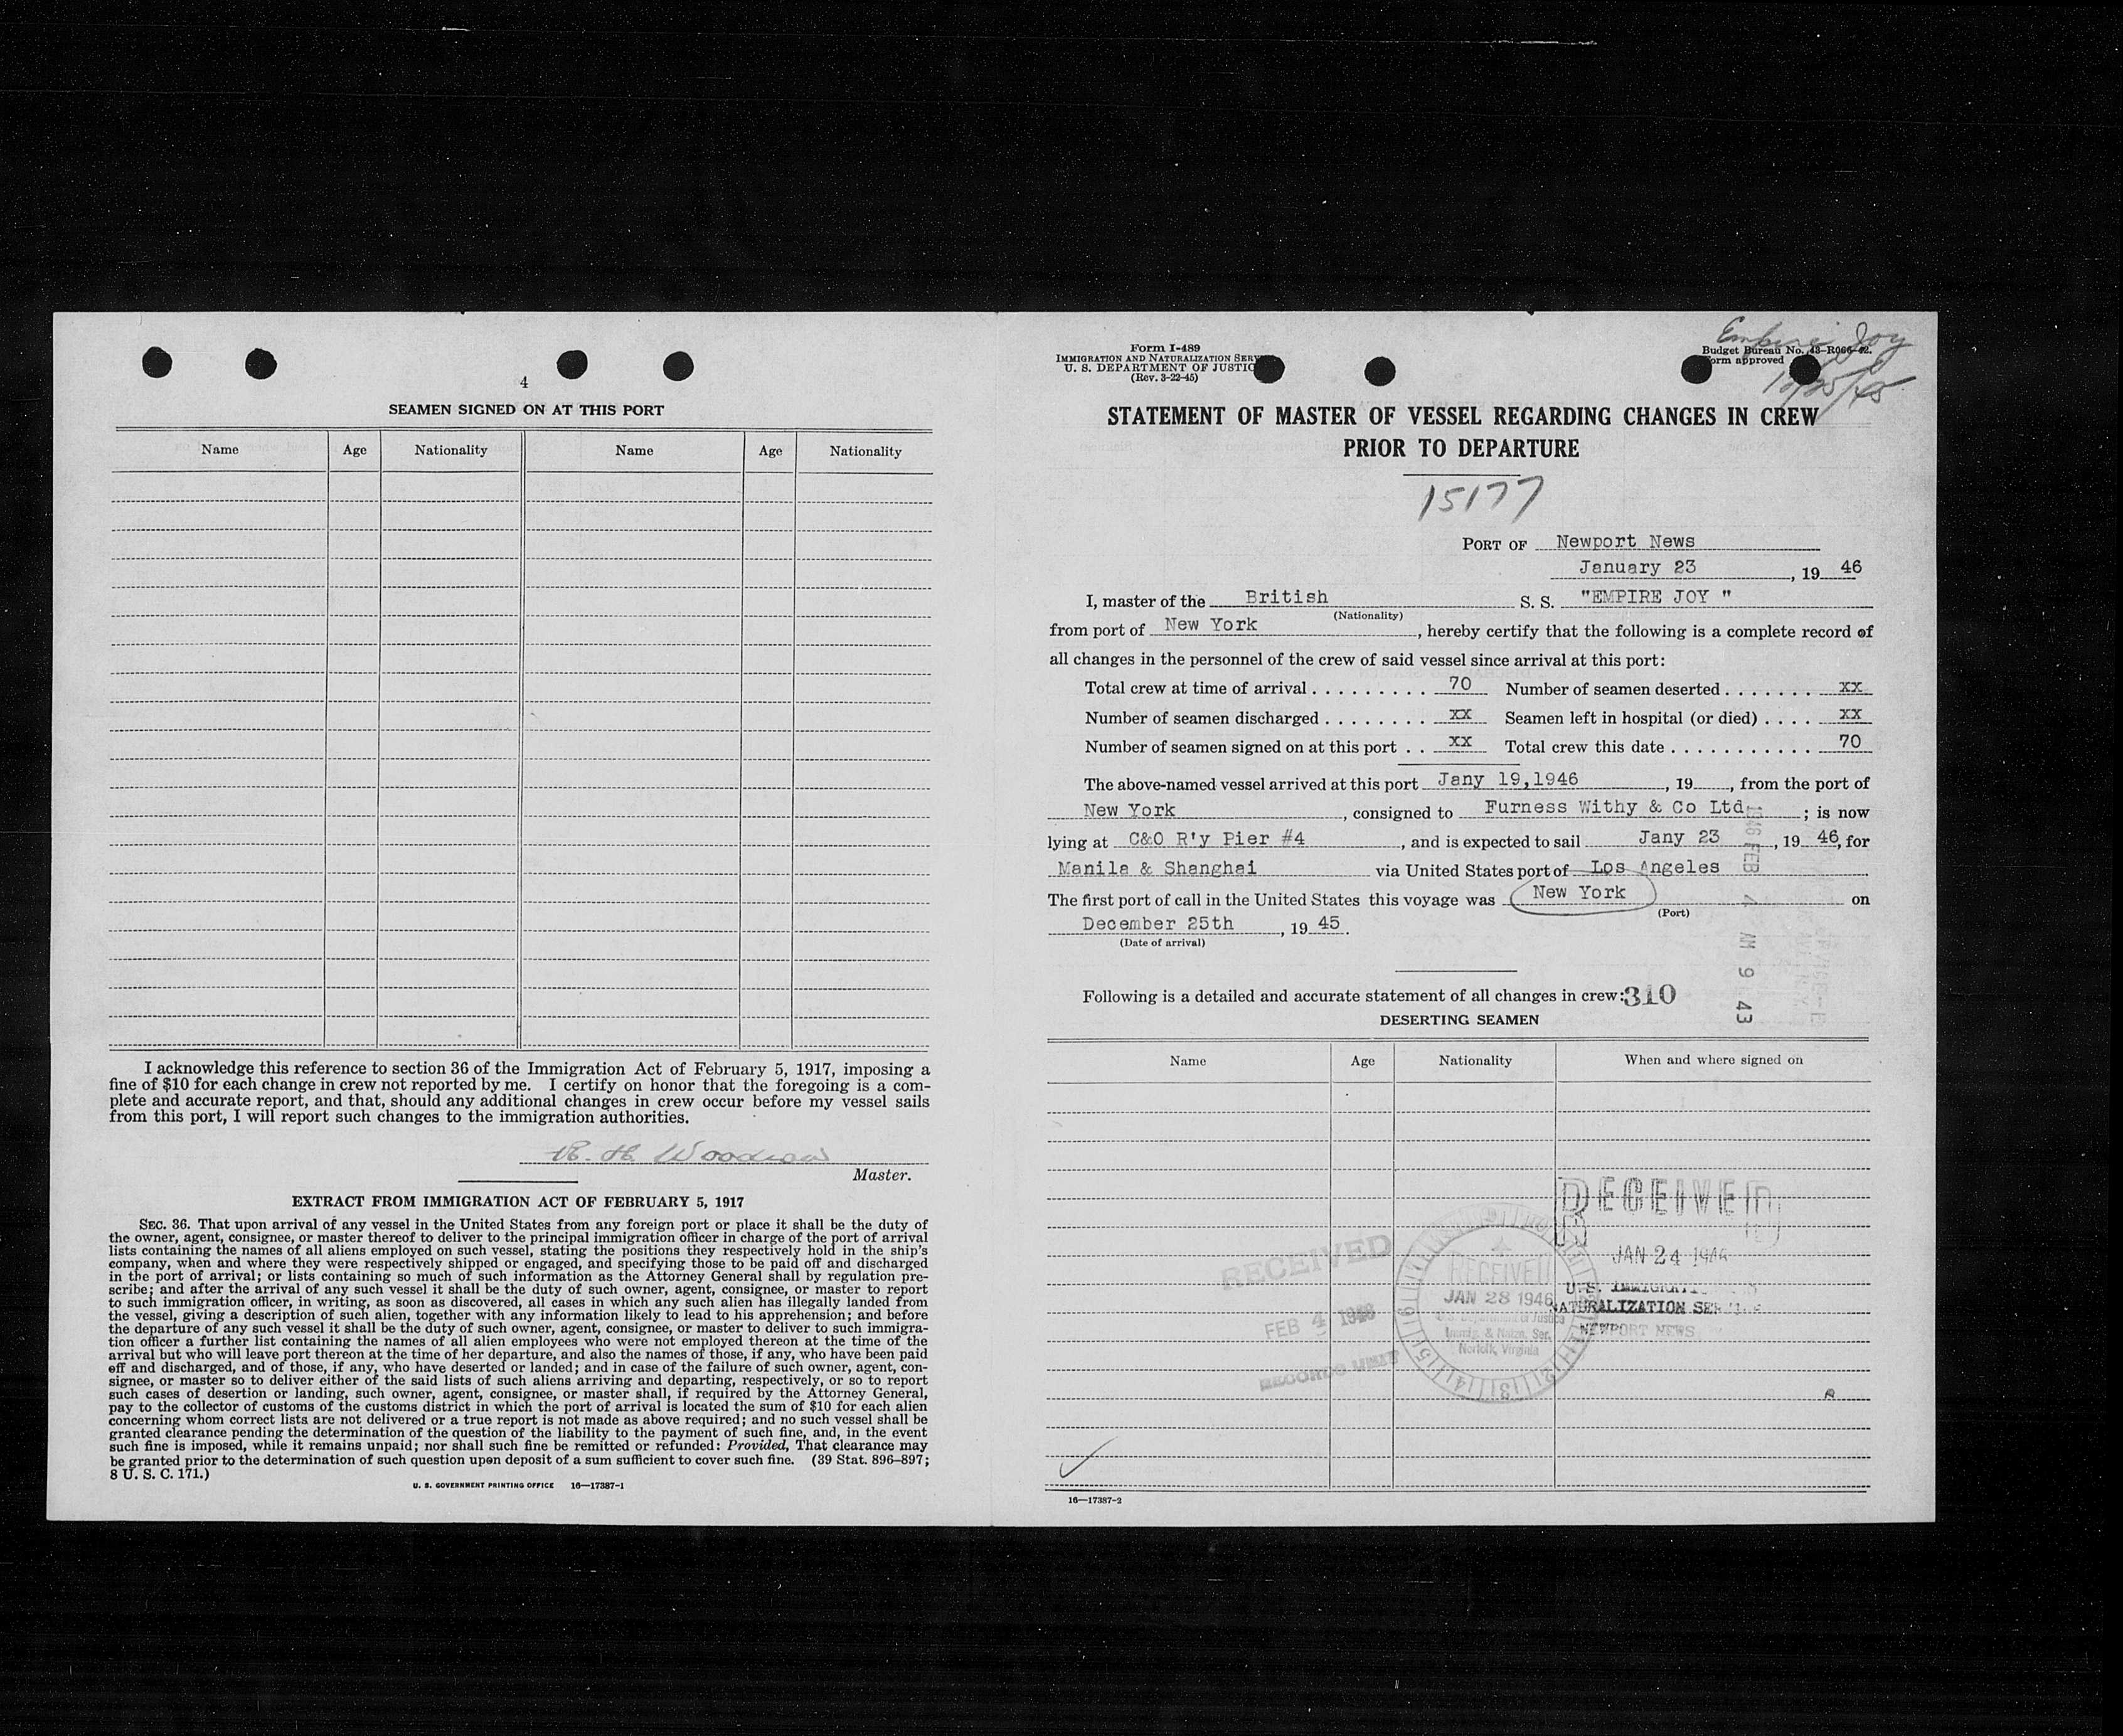 4
SEAMEN SIGNED ON AT THIS PORT
Name Age Nationality Name Age Nationality
I acknowledge this reference to section 36 of the Immigration Act of February 5, 1917, imposing a
fine of $10 for each change in crew not reported by me. I certify on honor that the foregoing is a com-
plete and accurate report, and that, should any additional changes in crew occur before my vessel sails
from this port, I will report such changes to the immigration authorities.
Master.
EXTRACT FROM IMMIGRATION ACT OF FEBRUARY 5, 1917
SEC. 36. That upon arrival of any vessel in the United States from any foreign port or place it shall be the duty of
the owner, agent, consignee, or master thereof to deliver to the principal immigration officer in charge of the port of arrival
lists containing the names of all aliens employed on such vessel, stating the positions they respectively hold in the ship's
company, when and where they were respectively shipped or engaged, and specifying those to be paid off and discharged
in the port of arrival; or lists containing so much of such information as the Attorney General shall by regulation pre-
scribe; and after the arrival of any such vessel it shall be the duty of such owner, agent, consignee, or master to report
to such immigration officer, in writing, as soon as discovered, all cases in which any such alien has illegally landed from
the vessel, giving a description of such alien, together with any information likely to lead to his apprehension; and before
the departure of any such vessel it shall be the duty of such owner, agent, consignee, or master to deliver to such immigra-
tion officer a further list containing the names of all alien employees who were not employed thereon at the time of the
arrival but who will leave port thereon at the time of her departure, and also the names of those, if any, who have been paid
off and discharged, and of those, if any, who have deserted or landed; and in case of the failure of such owner, agent, con-
signee, or master so to deliver either of the said lists of such aliens arriving and departing, respectively, or so to report
such cases of desertion or landing, such owner, agent, consignee, or master shall, if required by the Attorney General,
pay to the collector of customs of the customs district in which the port of arrival is located the sum of $10 for each alien
concerning whom correct lists are not delivered or a true report is not made as above required; and no such vessel shall be
granted clearance pending the determination of the question of the liability to the payment of such fine, and, in the event
such fine is imposed, while it remains unpaid; nor shall such fine be remitted or refunded: Provided, That clearance may
be granted prior to the determination of such question upon deposit of a sum sufficient to cover such fine. (39 Stat. 896–897;
8 U. S. C. 171.)
U. S. GOVERNMENT PRINTING OFFICE 16—17387-1
Form I-489
IMMIGRATION AND NATURALIZATION SERV
U. S. DEPARTMENT OF JUSTIC
(Rev. 3-22-45)
Empire Joy
Budget Bureau No. 43-R066-42.
orm approved
12/25/45
STATEMENT OF MASTER OF VESSEL REGARDING CHANGES IN CREW
PRIOR TO DEPARTURE
15177
PORT OF Newport News
January 23, 19 46
I, master of the British S. S. "EMPIRE JOY "
(Nationality)
from port of New York, hereby certify that the following is a complete record of
all changes in the personnel of the crew of said vessel since arrival at this port:
Total crew at time of arrival . . . . . . . . . 70 Number of seamen deserted . . . . . . . xx
Number of seamen discharged . . . . . . . . xx Seamen left in hospital (or died) . . . . xx
Number of seamen signed on at this port . . xx Total crew this date . . . . . . . . . . . 70
The above-named vessel arrived at this port Jany 19,1946, 19, from the port of
New York, consigned to Furness Withy & Co Ltd; is now
lying at C&O R'y Pier #4, and is expected to sail Jany 23, 19 46, for
Manila & Shanghai via United States port of Los Angeles
The first port of call in the United States this voyage was New York on
(Port)
December 25th, 19 45.
(Date of arrival)
1946 FEB 4 AM 9 43
Following is a detailed and accurate statement of all changes in crew: 310
DESERTING SEAMEN
Name Age Nationality When and where signed on
RECEIVED
JAN 24 1946
U. S. IMMIGRATI
NATURALIZATION SER
NEWPORT NEWS
RECEIVED
JAN 28 1946
U.S. Department of Justice
Immig. & Natzn. Ser.
Norfolk, Virginia
RECEIVED
FEB 4 1946
RECORDS UNIT
16—17387-2